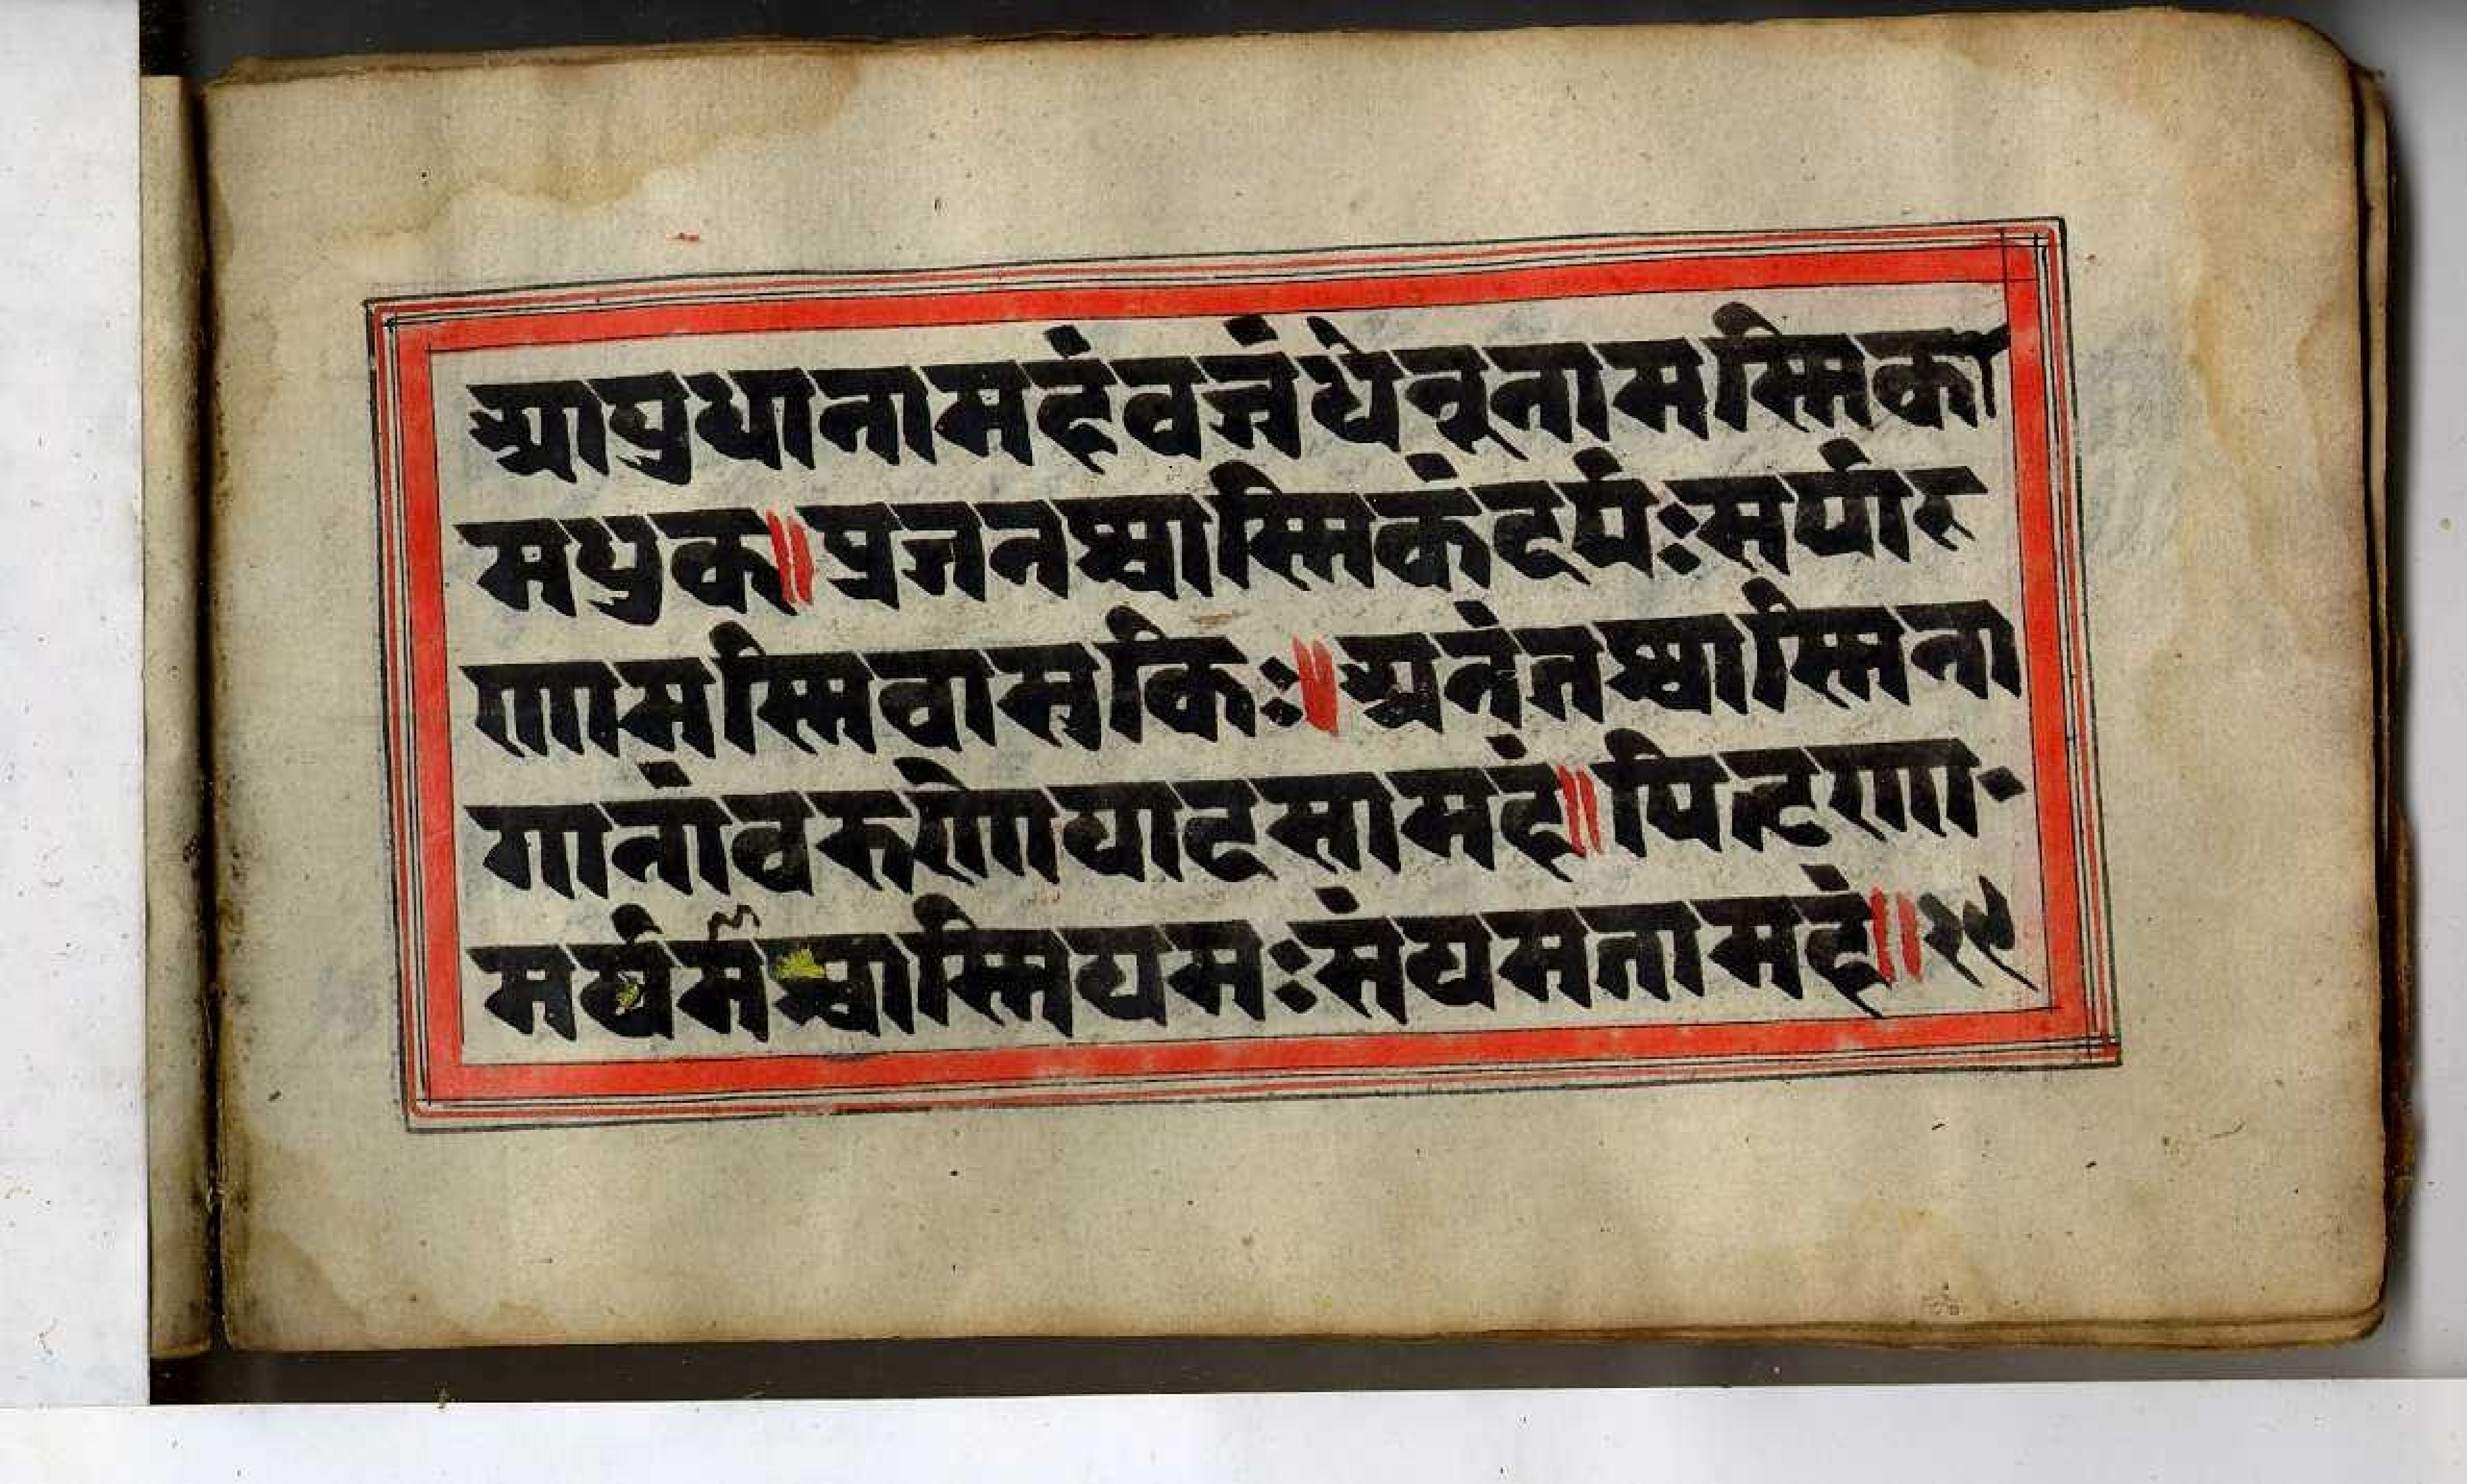 आयुधानामहंवज्रंधेनूनामस्मिका
मधुक॥प्रजनश्चास्मिकंदर्पःसर्पार
णामस्मिवासुकिः॥अनंतश्चास्मिना
गानांवरुणोयादसामहं॥पितृणा·
मर्यमंश्चास्मियमःसंयमतामहं॥२९